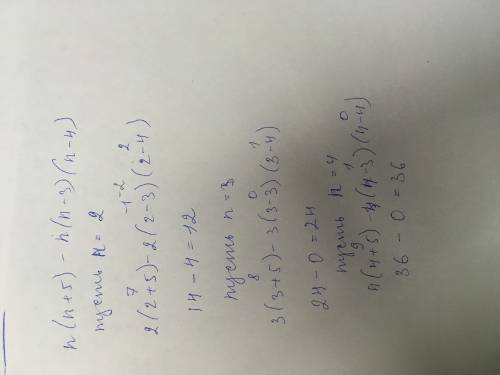 n(n+5)-n(n-3)(n-4)
пусть n=2
7 -1 -2 2
2(2+5)-2(2-3)(2-4)
14-4=12
пусть n=3
8 0 1
3(3+5)-3(3-3)(3-4)
24-0=24
пусть n=4
9 1 0
4(4+5)-4(4-3)(4-4)
36-0=36